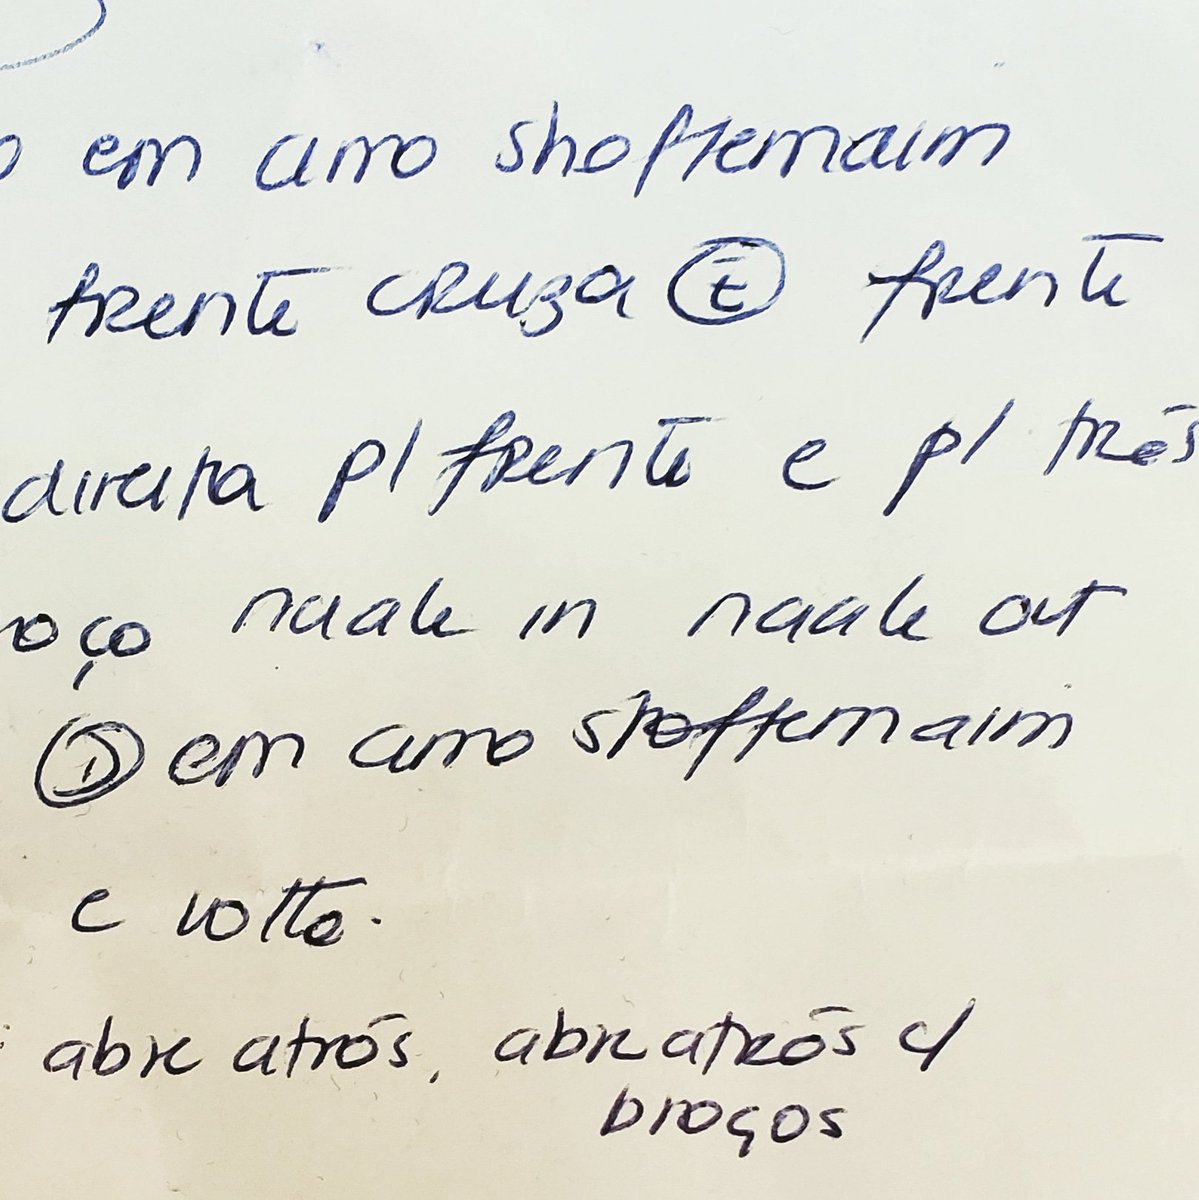 o em cima shoftemaim
frente cruza E frente
direita p/ frente e p/ trás
naale in naale out
D em cima shoftemaim
e volta.
abre atrás, abre atrás c/
braços